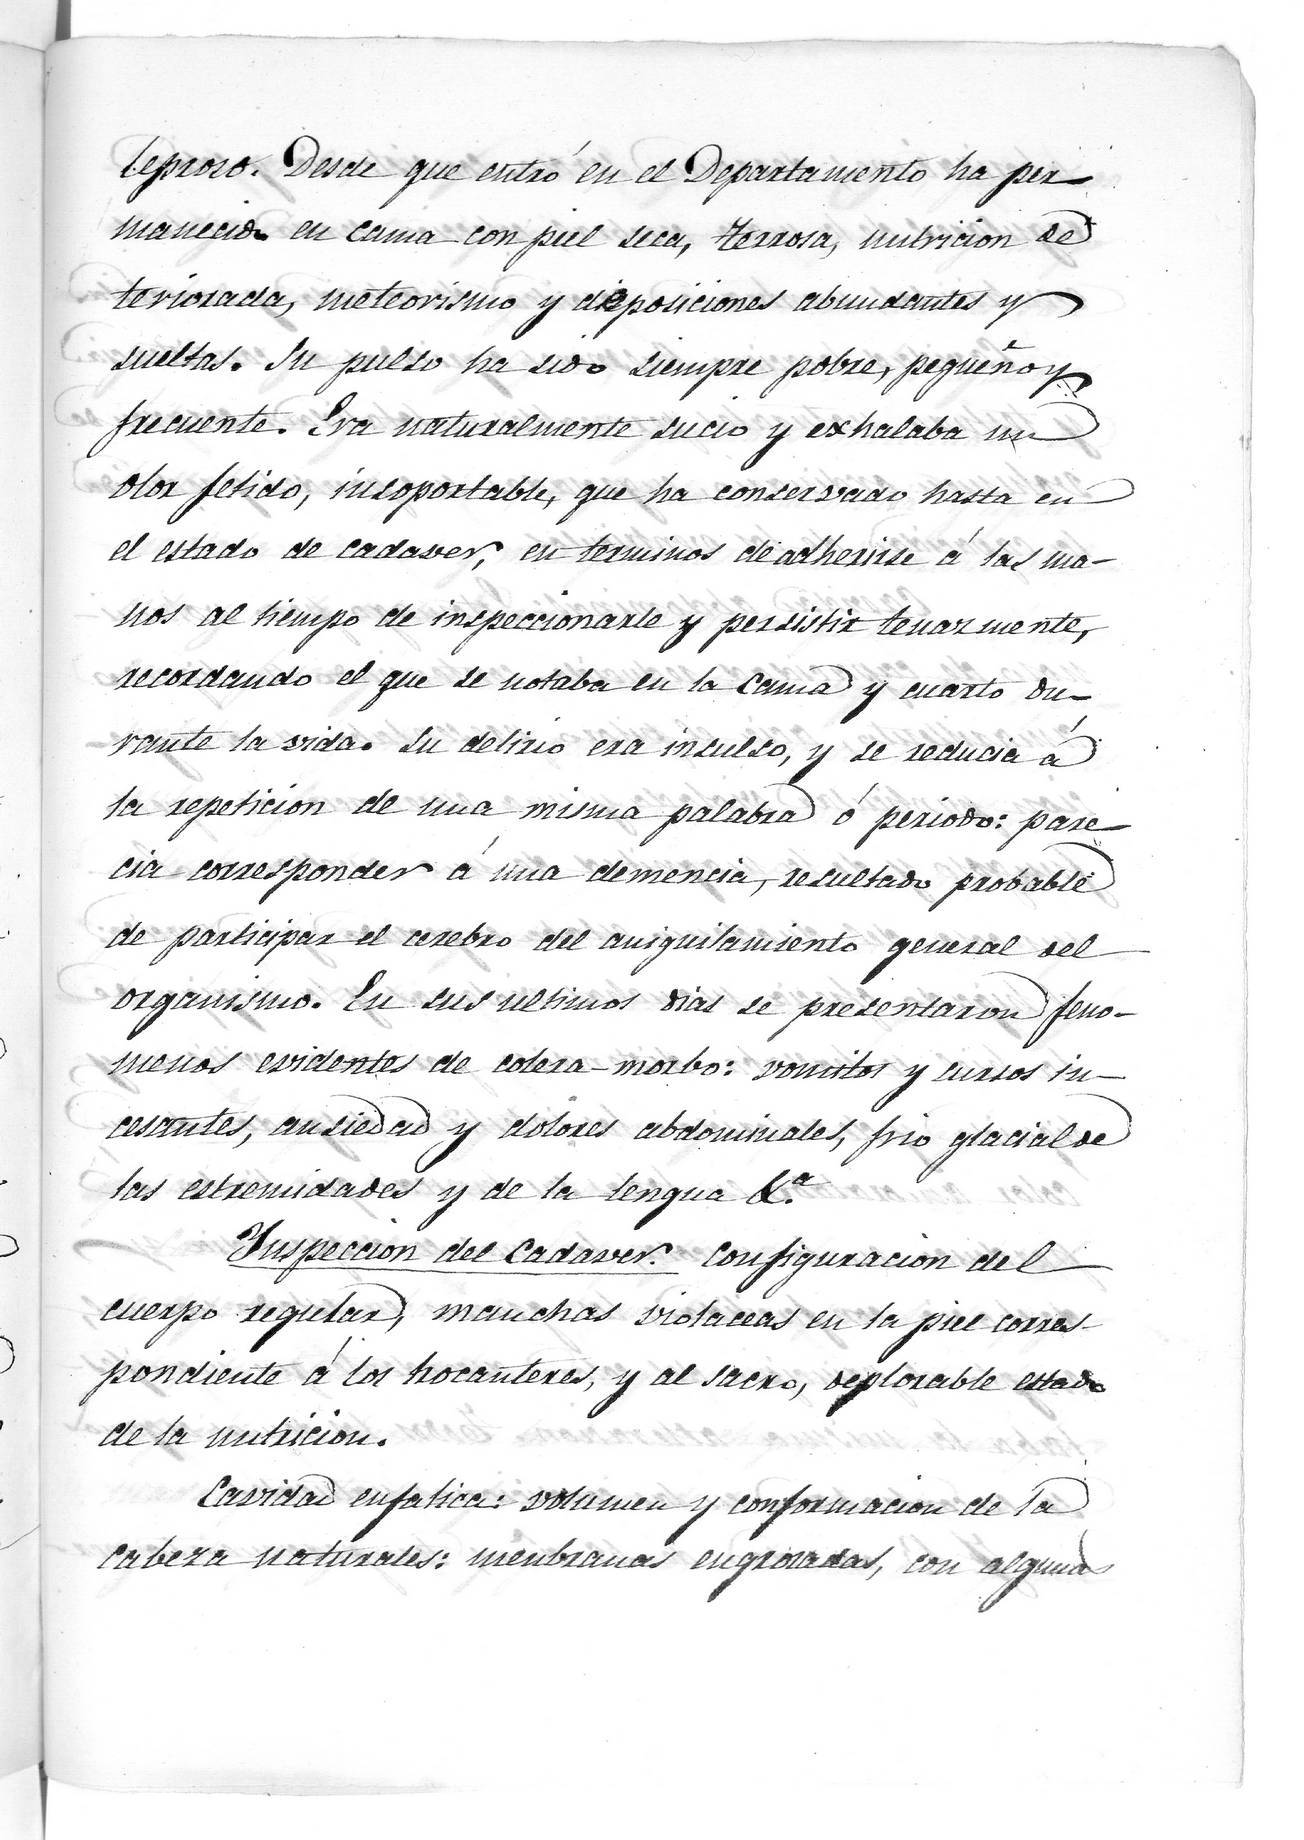 leproso. Desde que entró en el Departamento ha per
manecido en cama con piel seca, terrosa, nutricion de
teriorada, meteorismo y disposiciones abundantes y
sueltas. Su pulso ha sido siempre pobre, pequeño y
frecuente. Era naturalmente sucio y exhalaba un
olor fetido, insoportable, que ha conservado hasta en
el estado de cadaver, en terminos de adherirse á las ma-
nos al tiempo de inspeccionarle y persistir tenazmente,
recordando el que se notaba en la cama y cuarto du-
rante la vida. Su delirio era insulso, y se reducia á
la repeticion de una misma palabra ó periodo: pare
cia corresponder á una demencia, resultado probable
de participar el cerebro del aniquilamiento general del
organismo. En sus ultimos dias se presentaron feno-
menos evidentes de colera-morbo: vomitos y cursos in-
cesantes, ansiedad y dolores abdominales, frio glacial de
las estremidades y de la lengua &.ª
Inspeccion del Cadaver. Configuracion del
cuerpo regular, manchas violaceas en la piel corres-
pondiente á los trocanteres, y al sacro, deplorable estado
de la nutricion.
Cavidad enfalica: volumen y conformacion de la
cabeza naturales: menbranas engrosadas, con alguna